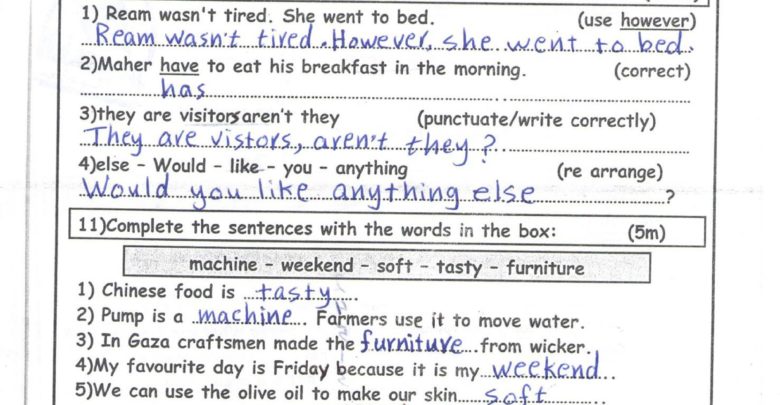 1) Ream wasn't tired. She went to bed. (use however)
Ream wasn't tired. However, she went to bed.
2)Maher have to eat his breakfast in the morning. (correct)
has
3)they are visitors aren't they (punctuate/write correctly)
They are vistors, aren't they?
4)else - Would - like - you - anything (re arrange)
Would you like anything else ?
11)Complete the sentences with the words in the box: (5m)
machine - weekend - soft - tasty - furniture
1) Chinese food is ...tasty....
2) Pump is a ..machine... Farmers use it to move water.
3) In Gaza craftsmen made the furniture...from wicker.
4)My favourite day is Friday because it is my...weekend...
5)We can use the olive oil to make our skin......soft............